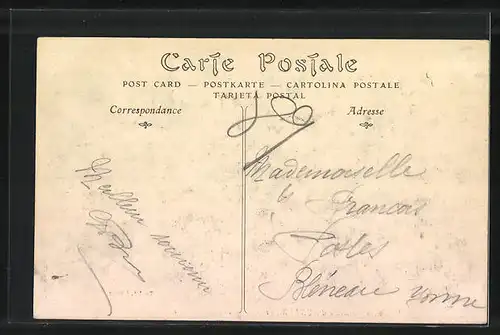 Carte Postale
POST CARD — POSTKARTE — CARTOLINA POSTALE
TARJETA POSTAL
Correspondance
Adresse
Meilleur souvenir
Mademoiselle
Francois
Postes
Bléneau Yonne